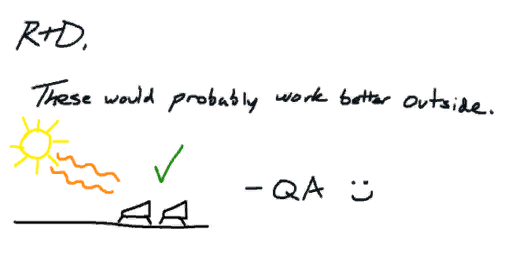 R+D.
These would probably work better outside.
- QA :)